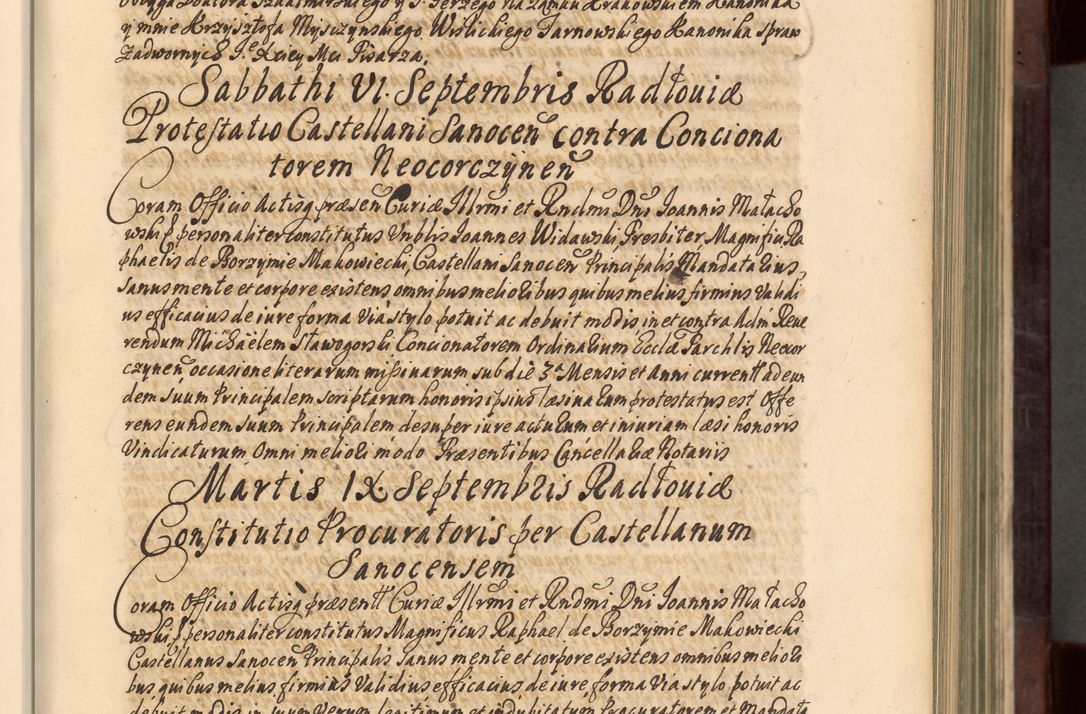 y mnie Krzysztofa Mysczynskiego Wislickiego Tarnowskiego Kanonika spraw
Zadwornych J. Xciey Mci Pisarza.
Sabbathi VI. Septembris Radłoviæ
Protestatio Castellani Sanocen̄ contra Conciona
torem Neocorczÿnen̄
Coram Officio Actisq præsen̄ Curiæ Illrmi et Rndmi Dni Joannis Małacho
wski E personaliter constitutus Vnblis Joannes Widawski Presbiter Magnifici Ra
phaelis de Borzymie Makowiecki, Castellani Sanocen̄ Principalis Mandatarius,
Sanus mente et corpore existens omnibus melioribus quibus melius firmius Validi
us efficacius de iure forma Via stylo potuit ac debuit modis in et contra Adm Reve
rendum Michaëlem Stawogorski Concionatorem Ordinarium Ecclæ Parchlis Neocor
czynen̄ occasione literarum missivarum sub die 3a Mensis et Anni currentt ad eun
dem suum Principalem scriptarum honoris ipsius læsivarum protestatus est Offe
rens eundem suum Principalem desuper iure acturum et iniuriam læsi honoris
Vindicaturum Omni meliori modo Præsentibus Cancellariæ Notariis
Martis IX Septembris Radłoviæ
Constitutio Procuratoris per Castellanum
Sanocensem
Coram Officio Actisq præsentt Curiæ Illrmi et Rndmi Dni Joannis Małacho
wski E personaliter constitutus Magnificus Raphael de Borzymie Makowiecki
Castellanus Sanocen̄ Principalis Sanus mente et corpore existens omnibus meliori
bus quibus melius, firmius Validius efficacius, de iure, forma Via stylo potuit ac
debuit modis in suum Verum legitimum et indubitatum Procuratorem et Mandata